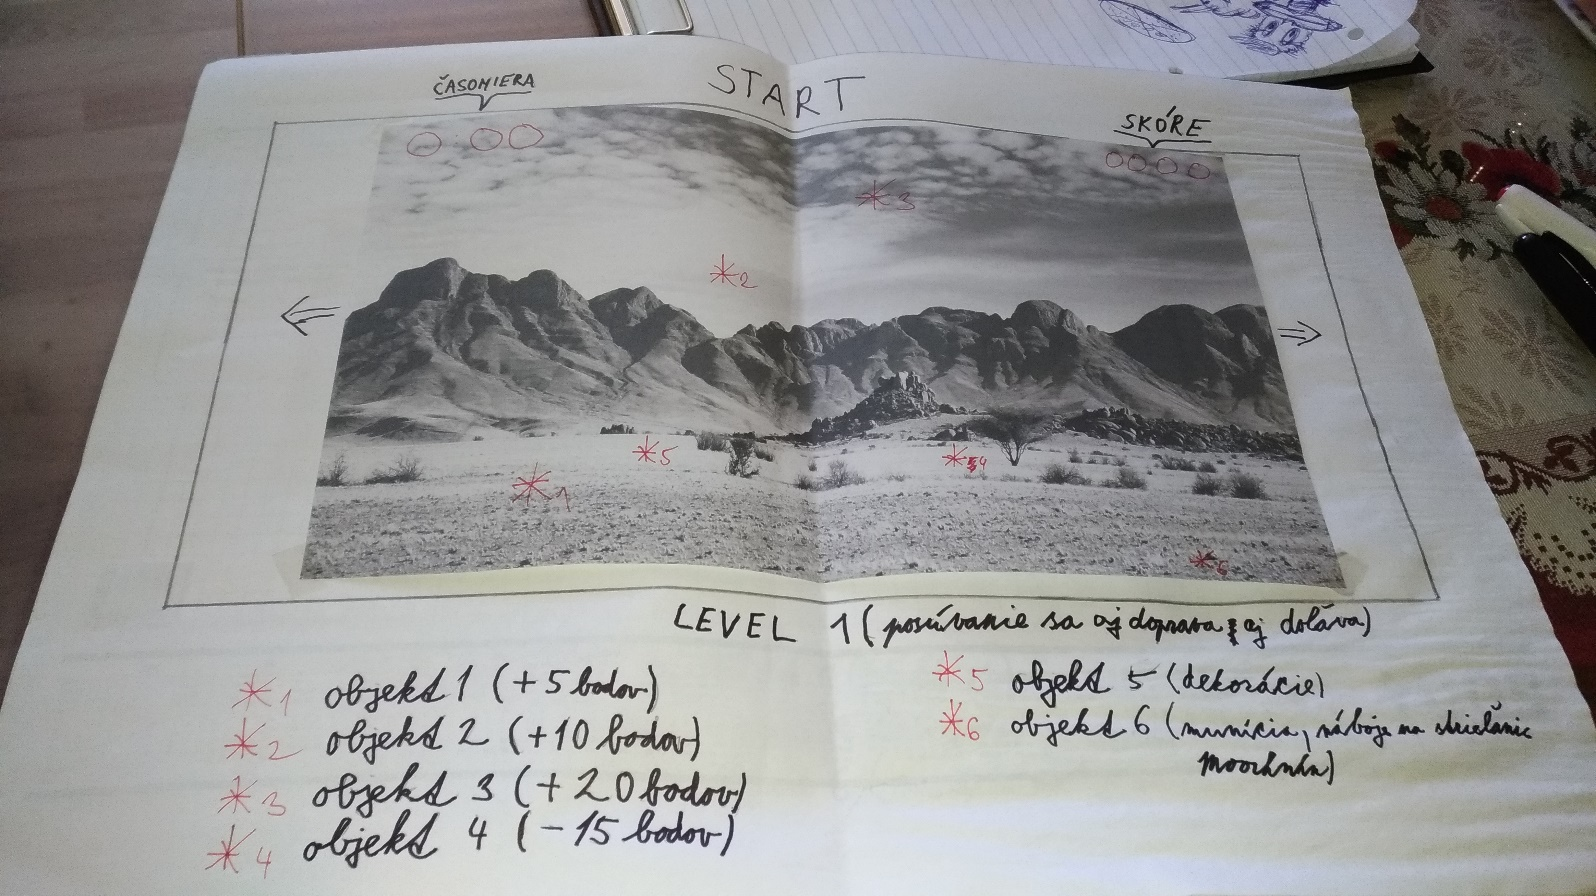 START
ČASOMIERA
SKÓRE
○ : ○○
○○○○
*3
*2
*5
*4
*1
*6
LEVEL 1 (posúvanie sa aj doprava aj doľava)
*1 objekt 1 (+5 bodov)
*2 objekt 2 (+10 bodov)
*3 objekt 3 (+20 bodov)
*4 objekt 4 (-15 bodov)
*5 objekt 5 (dekorácie)
*6 objekt 6 (munícia, náboje na strieľanie
moorhuhn)